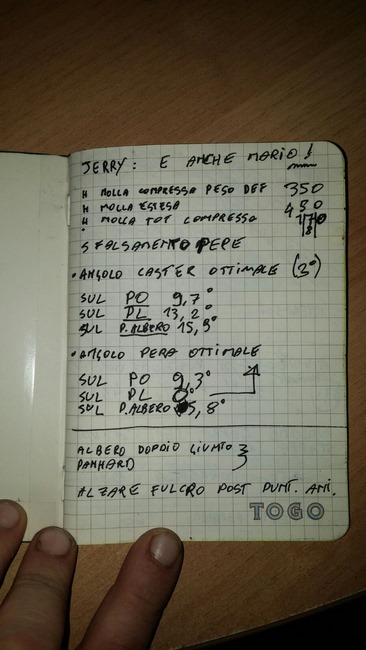 JERRY: E ANCHE MARIO!
mm
H MOLLA COMPRESSA PESO DEF 350
H MOLLA ESTESA 450
H MOLLA TOT COMPRESSA
SFALSAMENTO PERE
• ANGOLO CASTER OTTIMALE (3°)
SUL PO 9,7°
SUL PL 13,2°
SUL P.ALBERO 15,9°
• ANGOLO PERA OTTIMALE
SUL PO 9,3°
SUL PL 0°
SUL P.ALBERO 5,8°
ALBERO DOPPIO GIUNTO
PANHARD
ALZARE FULCRO POST PUNT. ANT.
TOGO